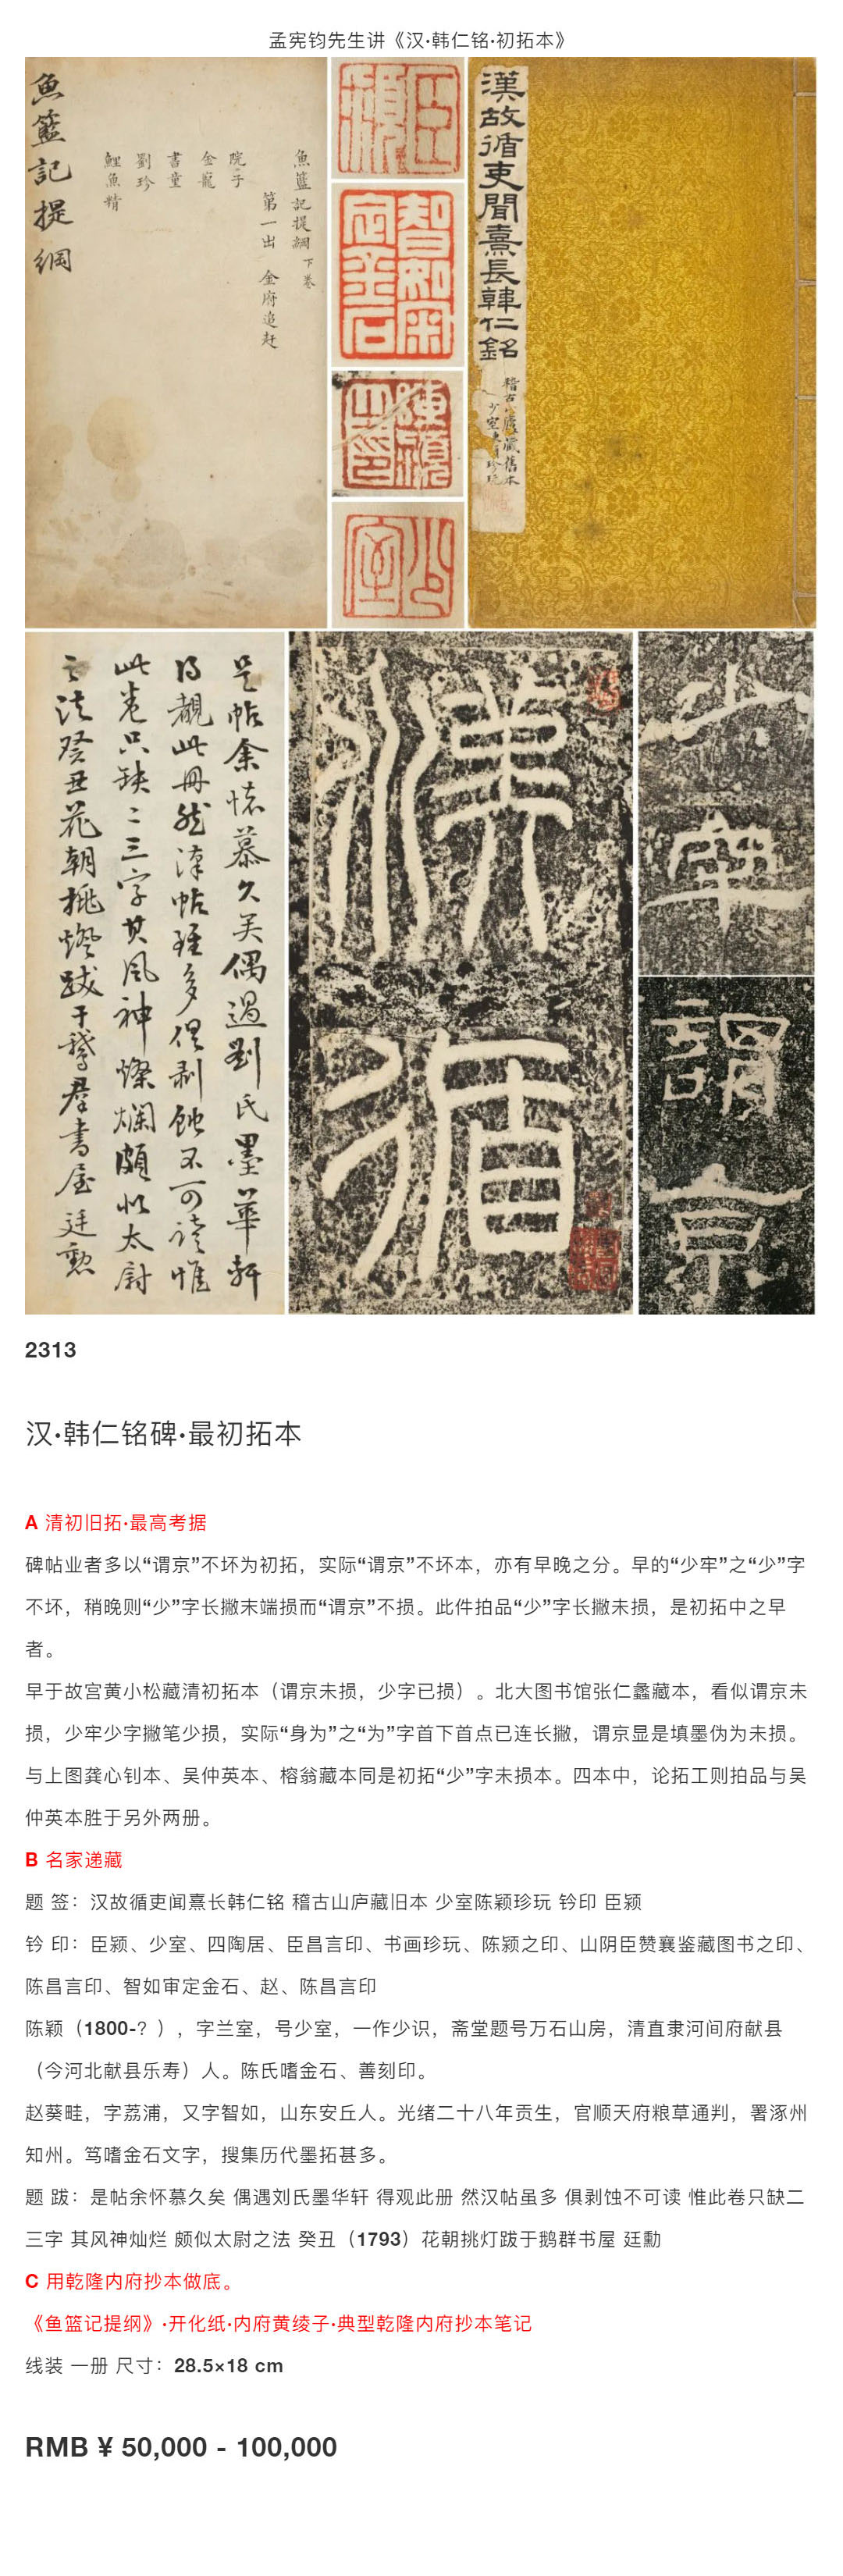 孟宪钧先生讲《汉·韩仁铭·初拓本》
魚籃記提綱
魚籃記提綱 下卷
第一出 金府追赶
院子
金寵
書童
劉珍
鯉魚精
臣穎
智如審定金石
陳穎之印
少室
漢故循吏聞熹長韓仁銘
稽古山廬藏舊本
少室陳穎珍玩
是帖余懷慕久矣偶過劉氏墨華軒
得觀此冊然漢帖雖多俱剥蝕不可讀惟
此卷只缺二三字其風神燦爛頗似太尉
之法癸丑花朝挑燈跋于鵝羣書屋廷勲
漢循
少牢
謂京
2313
汉·韩仁铭碑·最初拓本
A 清初旧拓·最高考据
碑帖业者多以“谓京”不坏为初拓，实际“谓京”不坏本，亦有早晚之分。早的“少牢”之“少”字
不坏，稍晚则“少”字长撇末端损而“谓京”不损。此件拍品“少”字长撇未损，是初拓中之早
者。
早于故宫黄小松藏清初拓本（谓京未损，少字已损）。北大图书馆张仁蠡藏本，看似谓京未
损，少牢少字撇笔少损，实际“身为”之“为”字首下首点已连长撇，谓京显是填墨伪为未损。
与上图龚心钊本、吴仲英本、榕翁藏本同是初拓“少”字未损本。四本中，论拓工则拍品与吴
仲英本胜于另外两册。
B 名家递藏
题 签：汉故循吏闻熹长韩仁铭 稽古山庐藏旧本 少室陈颖珍玩 钤印 臣颖
钤 印：臣颖、少室、四陶居、臣昌言印、书画珍玩、陈颖之印、山阴臣赞襄鉴藏图书之印、
陈昌言印、智如审定金石、赵、陈昌言印
陈颖（1800-？），字兰室，号少室，一作少识，斋堂题号万石山房，清直隶河间府献县
（今河北献县乐寿）人。陈氏嗜金石、善刻印。
赵葵畦，字荔浦，又字智如，山东安丘人。光绪二十八年贡生，官顺天府粮草通判，署涿州
知州。笃嗜金石文字，搜集历代墨拓甚多。
题 跋：是帖余怀慕久矣 偶遇刘氏墨华轩 得观此册 然汉帖虽多 俱剥蚀不可读 惟此卷只缺二
三字 其风神灿烂 颇似太尉之法 癸丑（1793）花朝挑灯跋于鹅群书屋 廷勳
C 用乾隆内府抄本做底。
《鱼篮记提纲》·开化纸·内府黄绫子·典型乾隆内府抄本笔记
线装 一册 尺寸：28.5×18 cm
RMB ¥ 50,000 - 100,000